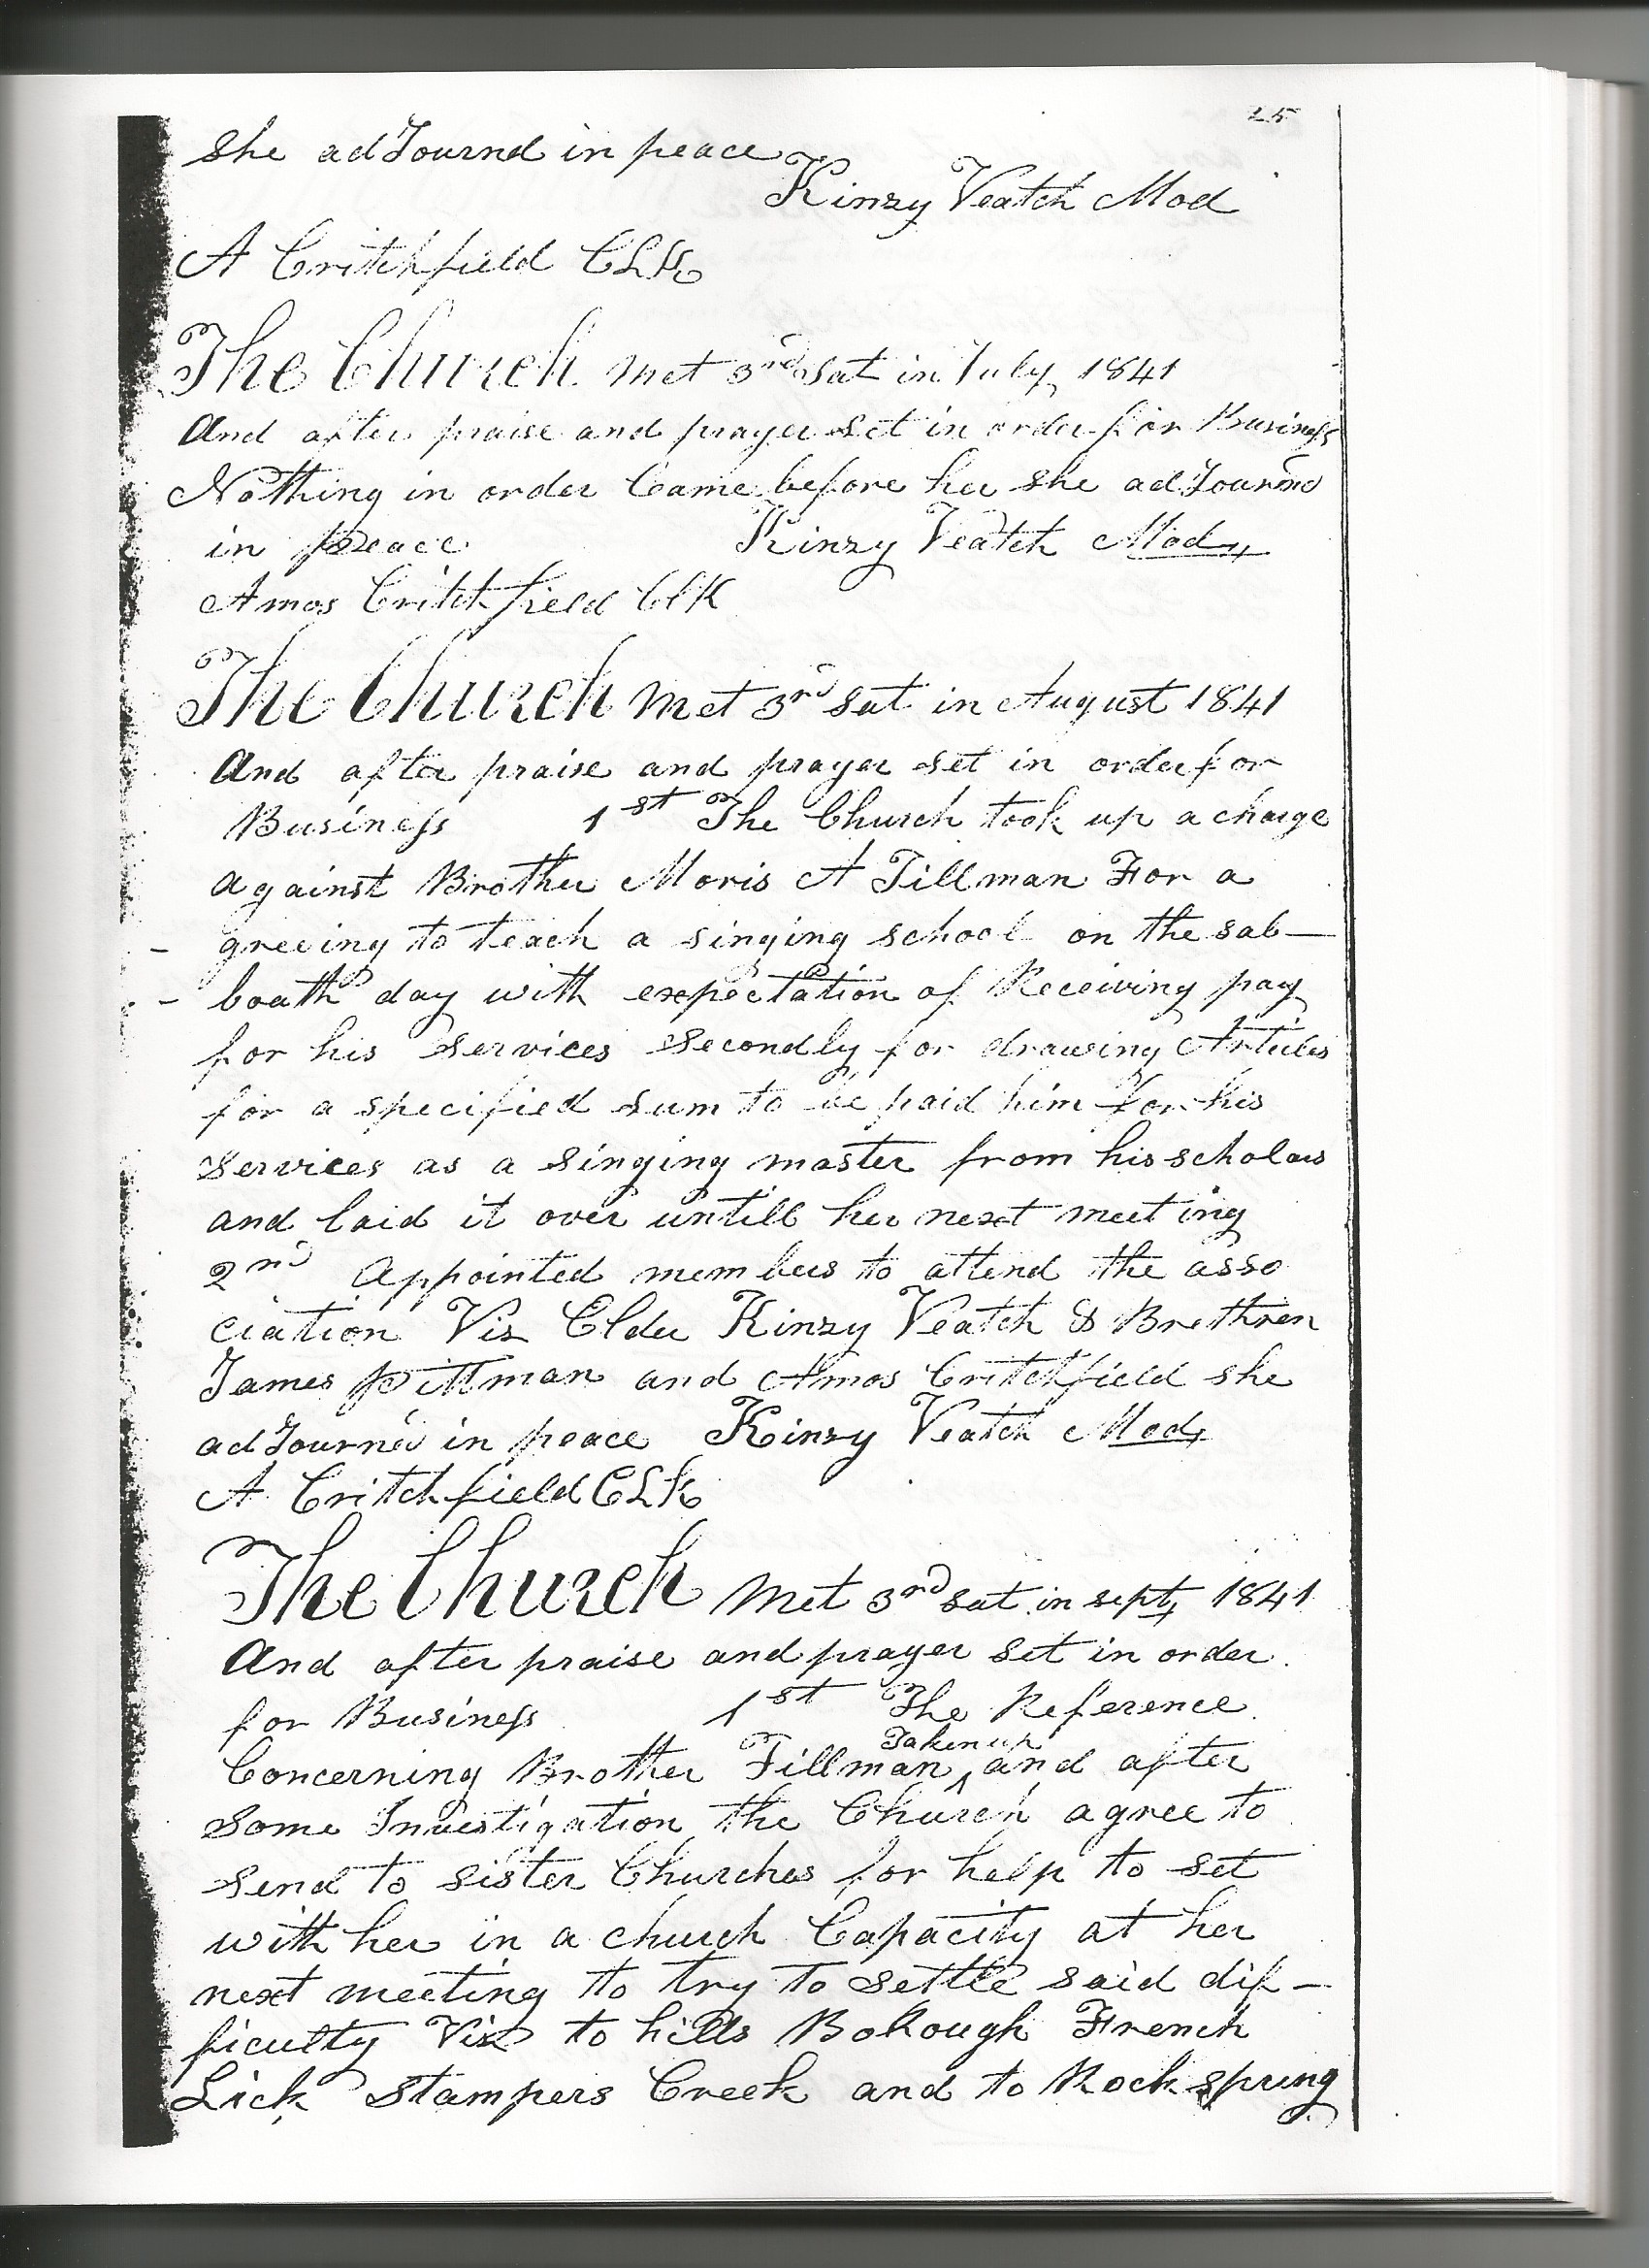 25
she adJournd in peace
Kinzy Veatch Mod
A Critchfield CLK
The Church Met 3rd Sat in July 1841
And after praise and prayer set in order for Business
Nothing in order Came before her she adJournd
in peace Kinzy Veatch Mod
Amos Critchfield ClK
The Church Met 3rd Sat in August 1841
And after praise and prayer set in order for
Business 1st The Church took up a charge
against Brother Moris A Tillman For a
- greeing to teach a singing school on the sab-
- boath day with expectation of Receiving pay
for his services secondly for drawing Articles
for a specified sum to be paid him For his
services as a singing master from his scholars
and laid it over untill her next meeting
2nd Appointed members to attend the asso
ciation Viz Elder Kinzy Veatch & Brethren
James Pittman and Amos Critchfield she
adJournd in peace Kinzy Veatch Mod
A Critchfield CLK
The Church Met 3rd Sat in sept 1841
And after praise and prayer set in order
for Business 1st The Reference
Concerning Brother Tillman Taken up and after
some Investigation the Church agree to
send to sister Churches for help to set
with her in a church Capacity at her
next meeting to try to settle said dif-
ficulty Viz to hills BoRough French
Lick Stampers Creek and to Rock spring